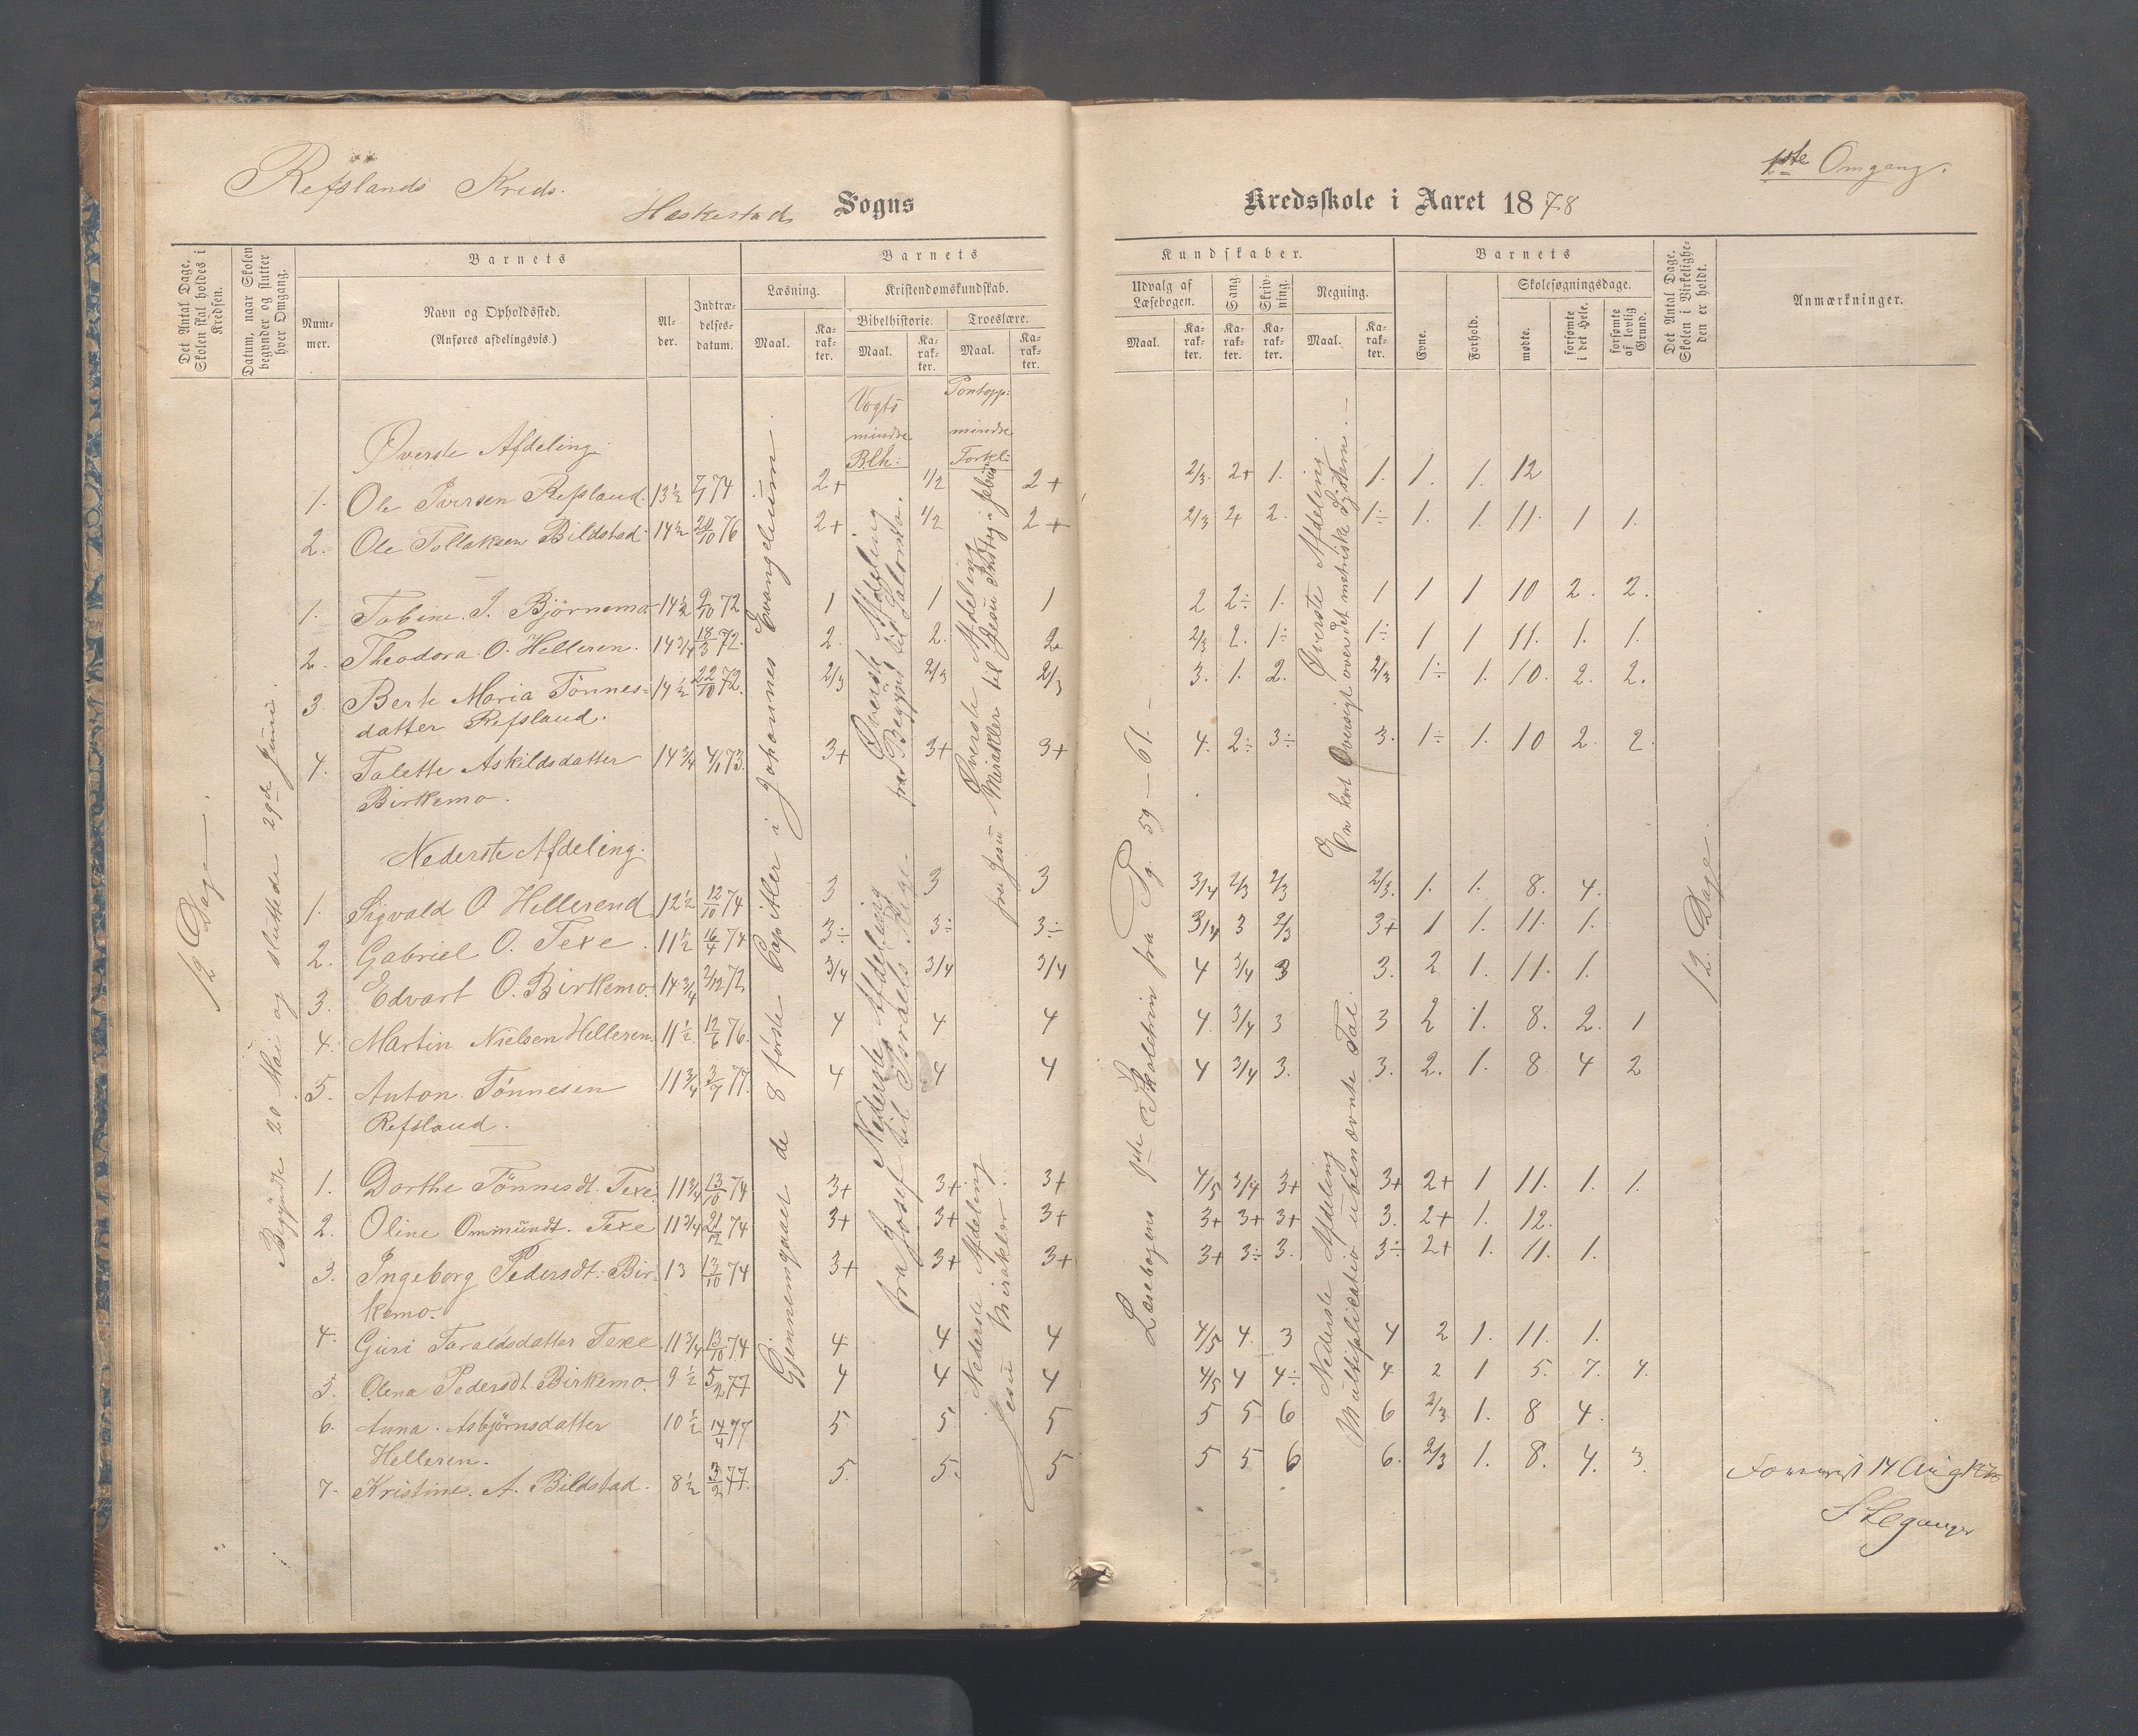 Refslands Kreds.
Heskestad Sogns
Kredsskole i Aaret 1878
1ste Omgang.
Det Antal Dage, Skolen skal holdes i Kredsen.
Datum, naar Skolen begynder og slutter hver Omgang.
Barnets
Nummer.
Navn og Opholdssted.
(Anføres afdelingsvis.)
Alder.
Indtrædelsesdatum.
Barnets
Læsning.
Maal.
Karakter.
Kristendomskundskab.
Bibelhistorie.
Maal.
Karakter.
Troeslære.
Maal.
Karakter.
Kundskaber.
Udvalg af Læsebogen.
Maal.
Karakter.
Sang.
Karakter.
Skrivning.
Karakter.
Regning.
Maal.
Karakter.
Barnets
Evne.
Forhold.
Skolesøgningsdage.
mødte.
forsømte i det Hele.
forsømte af lovlig Grund.
Det Antal Dage, Skolen i Virkeligheden er holdt.
Anmærkninger.
12 Dage.
Begyndte 20 Mai og sluttede 29de Juni.
Gjennemgaaet de 8 første Capitler i Johannes Evangelium.
Vogts mindre B.h:
Øverste Afdeling fra Begynd til Salomo.
Nederste Afdeling fra Josef til Israels Rige
Pontopp: mindre Forkl:
Øverste Afdeling fra Jesu Mirakler til Jesu Indtog i Jebus
Nederste Afdeling Jesu Mirakler
Læsebogens 1ste Skoletrin fra Pg. 59 — 61. —
Øverste Afdeling En kort Oversigt over det metriske System. —
Nederste Afdeling Multiplication ubenævnte Tal.
12. Dage.
Øverste Afdeling.
1. Ole Iversen Refsland. 13½ 7/7 74 2+ 1/2 2+ 2/3. 2+ 1. 1. 1. 1. 12
2. Ole Tollaksen Bildstad. 14½ 24/10 76 2+ 1/2 2+ 2/3 2 2. 1÷ 1. 1. 11. 1 1.
1. Tobine. J. Björnemo 14½ 2/10 72 1 1 1 2 2÷ 1. 1 1 1 10 2. 2.
2. Theodora. O. Helleren. 14¾ 18/3 72. 2. 2. 2. 2/3 2. 1÷ 1÷ 1 1 11. 1. 1.
3. Berte Maria Tönnes= 14½ 22/10 72. 2/3 2/3 2/3 3. 1. 2. 2/3 1÷ 1. 10. 2. 2.
datter Refsland.
4. Talette Askildsdatter 14¾ 4/1 73. 3+ 3+ 3+ 4. 2÷ 3÷ 3. 1÷ 1. 10 2. 2.
Birkemo.
Nederste Afdeling.
1. Sigvald O Hellerend 12½ 12/10 74 3 3 3 3/4 2/3 2/3 2/3. 1. 1. 8. 4.
2. Gabriel O. Texe. 11½ 16/4 74 3÷ 3÷ 3÷ 3/4 3 2/3 3+ 1 1. 11. 1.
3. Edvart O. Birkemo. 14¾ 2/12 72 3/4 3/4 3/4 4 3/4 3 3. 2. 1. 11. 1.
4. Martin Nielsen Helleren. 11½ 12/6 76. 4 4 4 4. 3/4 3 3 2 1. 8. 2. 1
5. Anton Tönnesen 11¾ 3/7 77. 4 4 4 4 3/4 3. 3. 2. 1. 8 4 2
Refsland.
1. Dorthe Tönnesdt. Texe. 11¾ 13/10 74 3+ 3+. 3+ 4/5 3/4 3+ 3+ 2+ 1 11. 1. 1.
2. Oline Ommundt. Texe 11¾ 21/12 74 3+ 3+ 3+ 3+ 3+ 3+ 3. 2+ 1. 12.
3. Ingeborg Pedersdt. Bir- 13 13/10 74 3+ 3+ 3+ 3+ 3÷ 3. 3÷ 2+ 1. 11. 1.
kemo.
4. Guri Taraldsdatter Texe 11¾ 13/10 74 4 4 4 4/5 4. 3 4 2 1. 11. 1.
5. Olena Pedersdt. Birkemo. 9½ 5/2 77 4 4 4 4/5 4 4÷ 4 2 1 5. 7. 4.
6. Anna. Asbjörnsdatter 10½ 14/4 77 5 5 5 5 5 6 6 2/3 1. 8 4.
Helleren.
7. Kristine. A. Bildstad. 8½ 3/2 77. 5. 5. 5 5 5 6 6. 2/3 1. 8. 4. 3.
14 Aug 1878